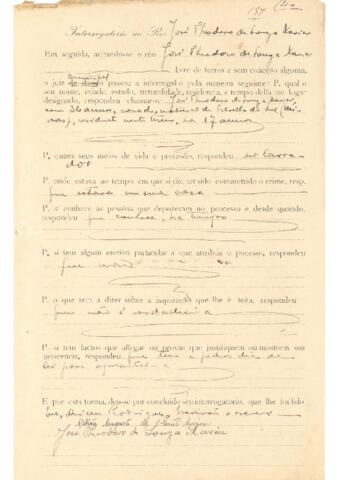 157
Interrogatorio ao Réo José Theodoro de Souza Xavier
Em seguida, achando-se o réo José Theodoro de Souza Xavier
livre de ferros e sem coacção alguma,
o juiz municipal passou a interrogal-o pela maneira seguinte: P. qual o
seu nome, edade, estado, naturalidade, residencia, e tempo della no logar
designado, respondeu chamar-se José Theodoro de Souza Xavier,
com 36 annos, casado, natural de
residente neste termo, ha 17 annos
P. quaes seus meios de vida e profissão, respondeu ser lavra-
dor
P. onde estava ao tempo em que si diz, ter sido commettido o crime, resp.
que estava em sua casa
P. si conhece as pessoas que depuzeram no processo e desde quando,
respondeu que conhece, ha tempos
P. si tem algum motivo particular a que attribúa o processo, respondeu
que não
P. o que tem a dizer sobre a imputação que lhe é feita, respondeu
que não é verdadeira
P. si tem factos que allegar ou provas que justifiquem ou mostrem sua
innocencia, respondeu que tem e pedia dias de
lei para apresentar
E por esta forma, deu-se por concluido seu interrogatorio, que lhe foi lido
Eu, Rodrigues, escrivão o escrevi
José Theodoro de Souza Xavier